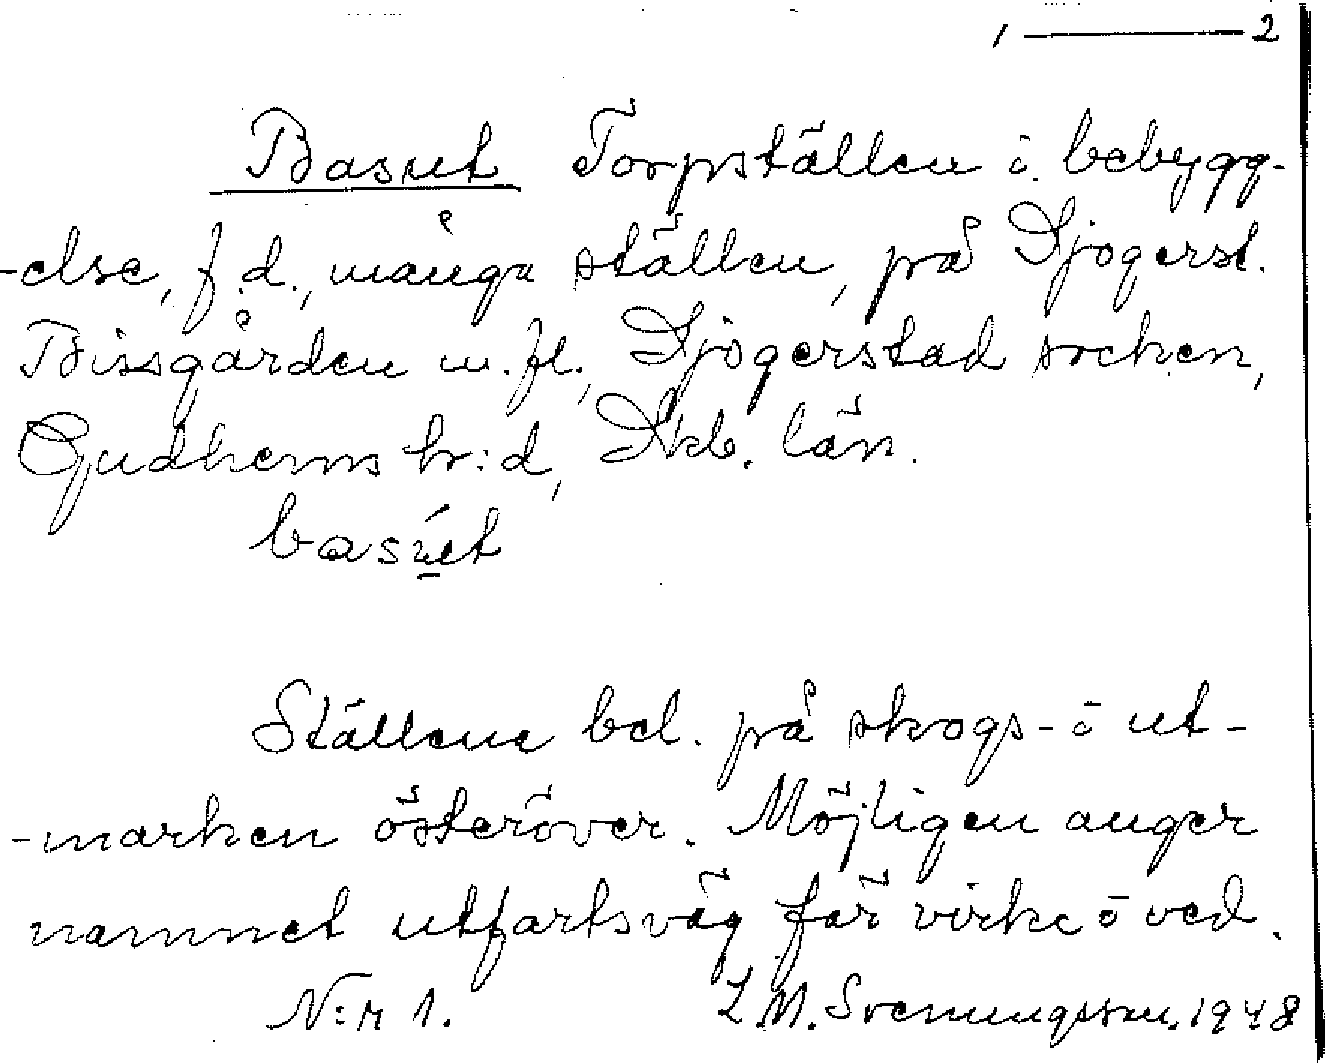 1 — 2
Basut Torpställen i bebygg-
-else, f.d., många ställen, på Sjogerst.
Bissgården m.fl., Sjogerstad socken,
Gudhems hr:d, Skb. län.
basút
Ställene bel. på skogs- o ut-
-marken österöver. Möjligen anger
namnet utfartsväg för virke o ved.
N:r 1. L.M. Svenungsson. 1948